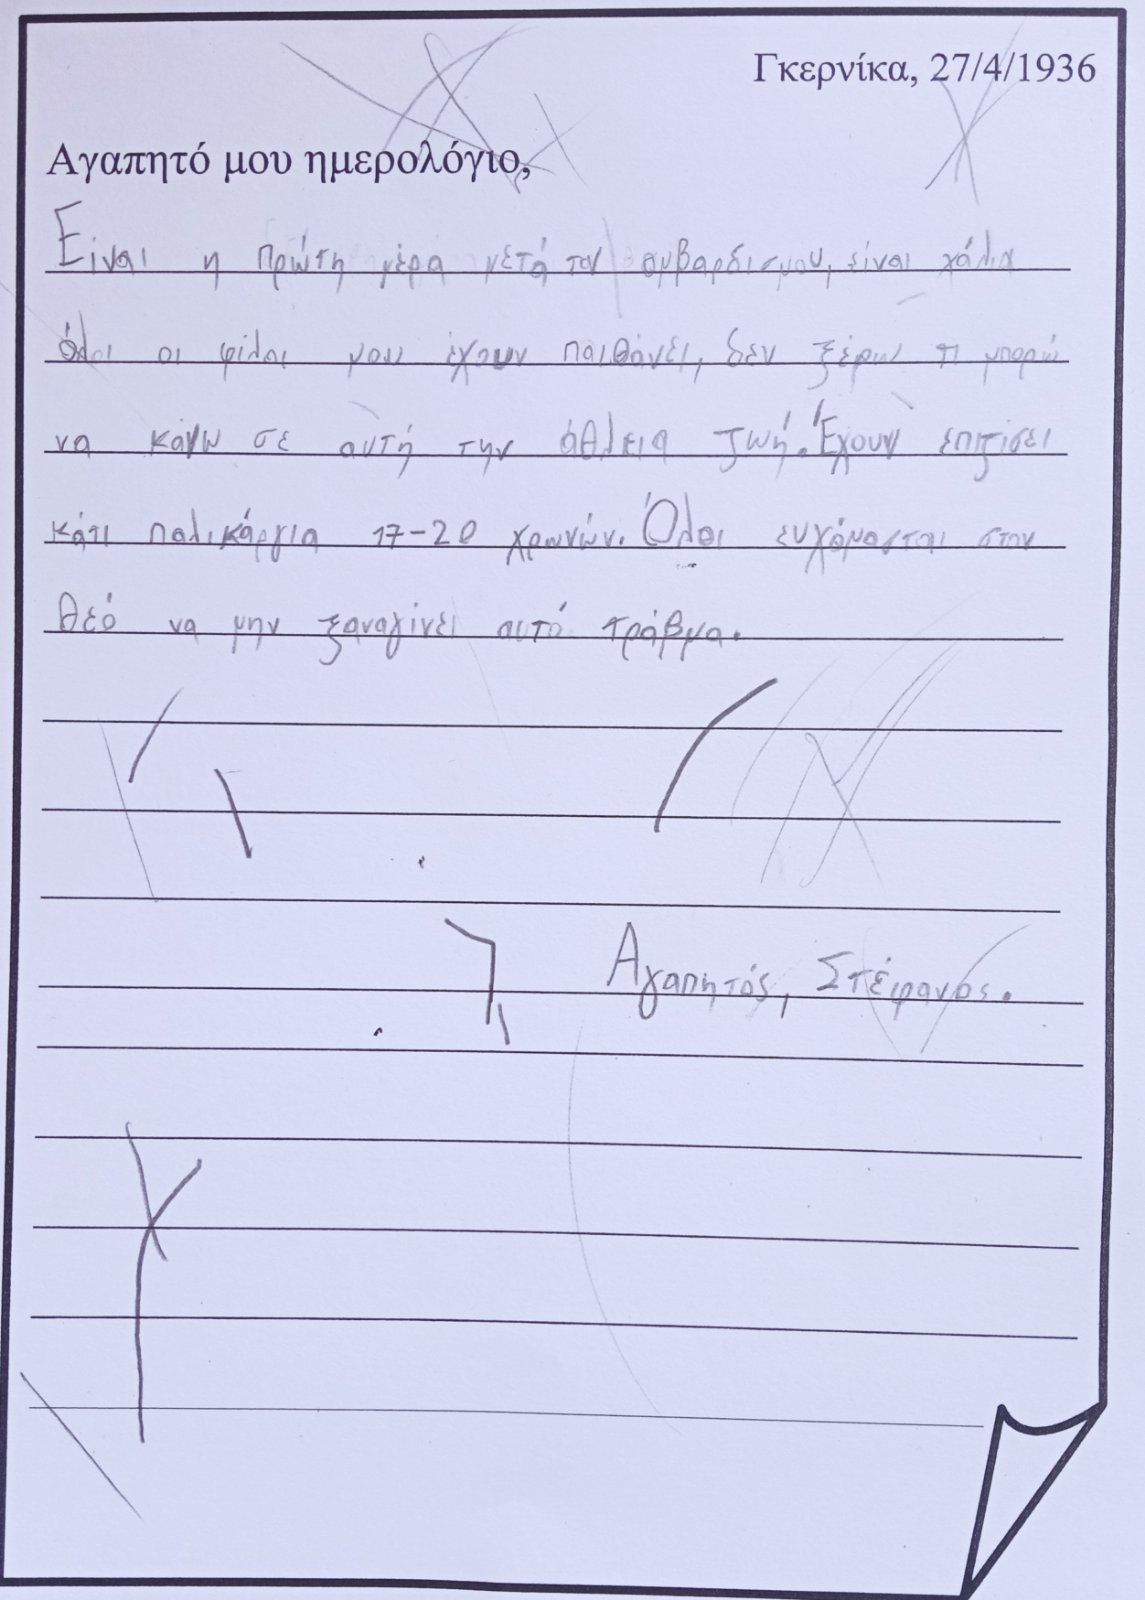 Γκερνίκα, 27/4/1936
Αγαπητό μου ημερολόγιο,
Είναι η πρώτη μέρα μετά τον ομβαρδισμου, είναι χάλια
όλοι οι φίλοι μου έχουν παιθάνει, δεν ξέρω τι μπορώ
να κάνω σε αυτή την άθλεια ζωή. Έχουν επιζίσει
κάτι παλικάργια 17-20 χρωνών. Όλοι ευχόμασται στον
θεό να μην ξαναγίνει αυτό τράβμα.
Αγαπητός, Στέφανος.